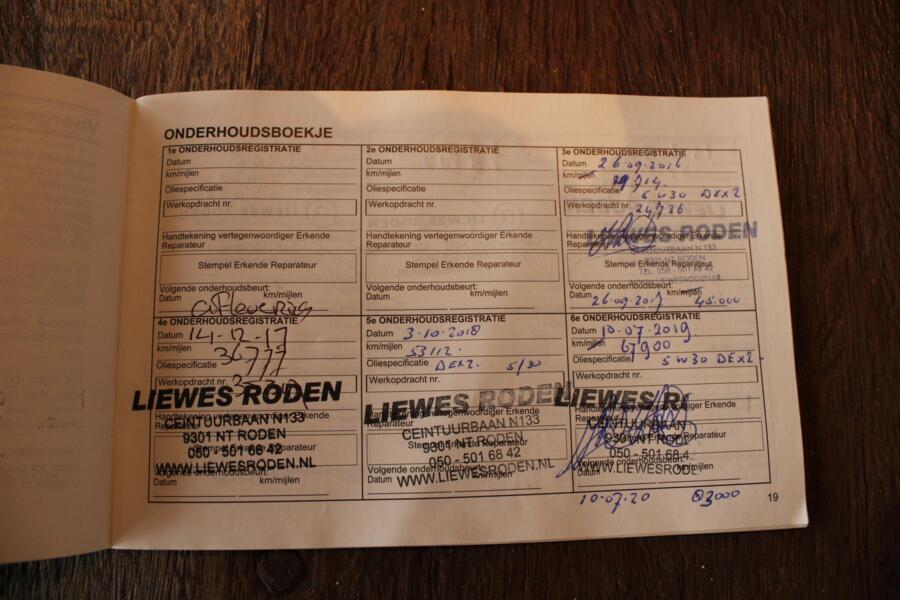 ONDERHOUDSBOEKJE
1e ONDERHOUDSREGISTRATIE
Datum
km/mijlen
Oliespecificatie
Werkopdracht nr.
Handtekening vertegenwoordiger Erkende
Reparateur
Stempel Erkende Reparateur
Volgende onderhoudsbeurt:
Datum km/mijlen
2e ONDERHOUDSREGISTRATIE
Datum
km/mijlen
Oliespecificatie
Werkopdracht nr.
Handtekening vertegenwoordiger Erkende
Reparateur
Stempel Erkende Reparateur
Volgende onderhoudsbeurt:
Datum km/mijlen
3e ONDERHOUDSREGISTRATIE
Datum 26.09.2016
km/mijlen 29.714.
Oliespecificatie 5W30 DEX2.
Werkopdracht nr. 24736
Reparateur
LIEWES RODEN
CEINTUURBAAN N 133
9301 NT RODEN
Stempel Erkende Reparateur
TEL. 050 - 501 68 42
WWW.LIEWESRODEN.NL
Volgende onderhoudsbeurt:
Datum km/mijlen
26.09.2017 45.000
4e ONDERHOUDSREGISTRATIE
Datum 14-12-17
km/mijlen 36777
Oliespecificatie
Werkopdracht nr.
LIEWES RODEN
Handtekening vertegenwoordiger Erkende
Reparateur
CEINTUURBAAN N133
9301 NT RODEN
Stempel Erkende Reparateur
050 - 501 68 42
WWW.LIEWESRODEN.NL
Volgende onderhoudsbeurt:
Datum km/mijlen
5e ONDERHOUDSREGISTRATIE
Datum 3-10-2018
km/mijlen 53112.
Oliespecificatie DEX2. 5/30
Werkopdracht nr.
LIEWES RODEN
Handtekening vertegenwoordiger Erkende
Reparateur
CEINTUURBAAN N133
9301 NT RODEN
Stempel Erkende Reparateur
050 - 501 68 42
WWW.LIEWESRODEN.NL
Volgende onderhoudsbeurt:
Datum km/mijlen
6e ONDERHOUDSREGISTRATIE
Datum 10-07-2019
km/mijlen 67900
Oliespecificatie 5W30 DEX2.
Werkopdracht nr.
LIEWES R
Handtekening vertegenwoordiger Erkende
Reparateur
CEINTUURBAAN
9301 NT ROD
Stempel Erkende Reparateur
050 - 501 68 4
Volgende onderhoudsbeurt:
WWW.LIEWESROD
Datum km/mijlen
10-07-20 83000
19